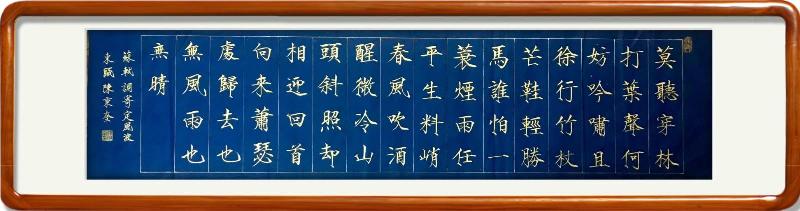 莫聽穿林
打葉聲何
妨吟嘯且
徐行竹杖
芒鞋輕勝
馬誰怕一
蓑煙雨任
平生料峭
春風吹酒
醒微冷山
頭斜照却
相迎回首
向来蕭瑟
處歸去也
無風雨也
無晴
蘇軾 調寄定風波
東甌 陳